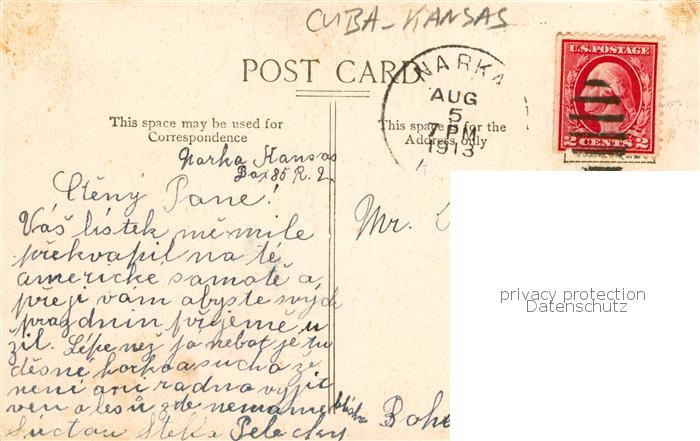 CUBA-KANSAS
POST CARD
NARKA
AUG
5
7 PM
1913
K
U.S. POSTAGE
2 CENTS 2
This space may be used for
Correspondence
This space is for the
Address only
Narka Kansas
Box 85 R. 2.
Ctěný Pane!
Váš lístek mě mile
překvapil na té
americke samotě a
přeji vám abyste svých
prazdnin příjemě u
žil. Lépe než já neboť je tu
děsné horko a sucho že
není ani radno vyjít
ven a lesů zde nemáme
Súctou Pelecky
Mr.
Bohe
privacy protection
Datenschutz